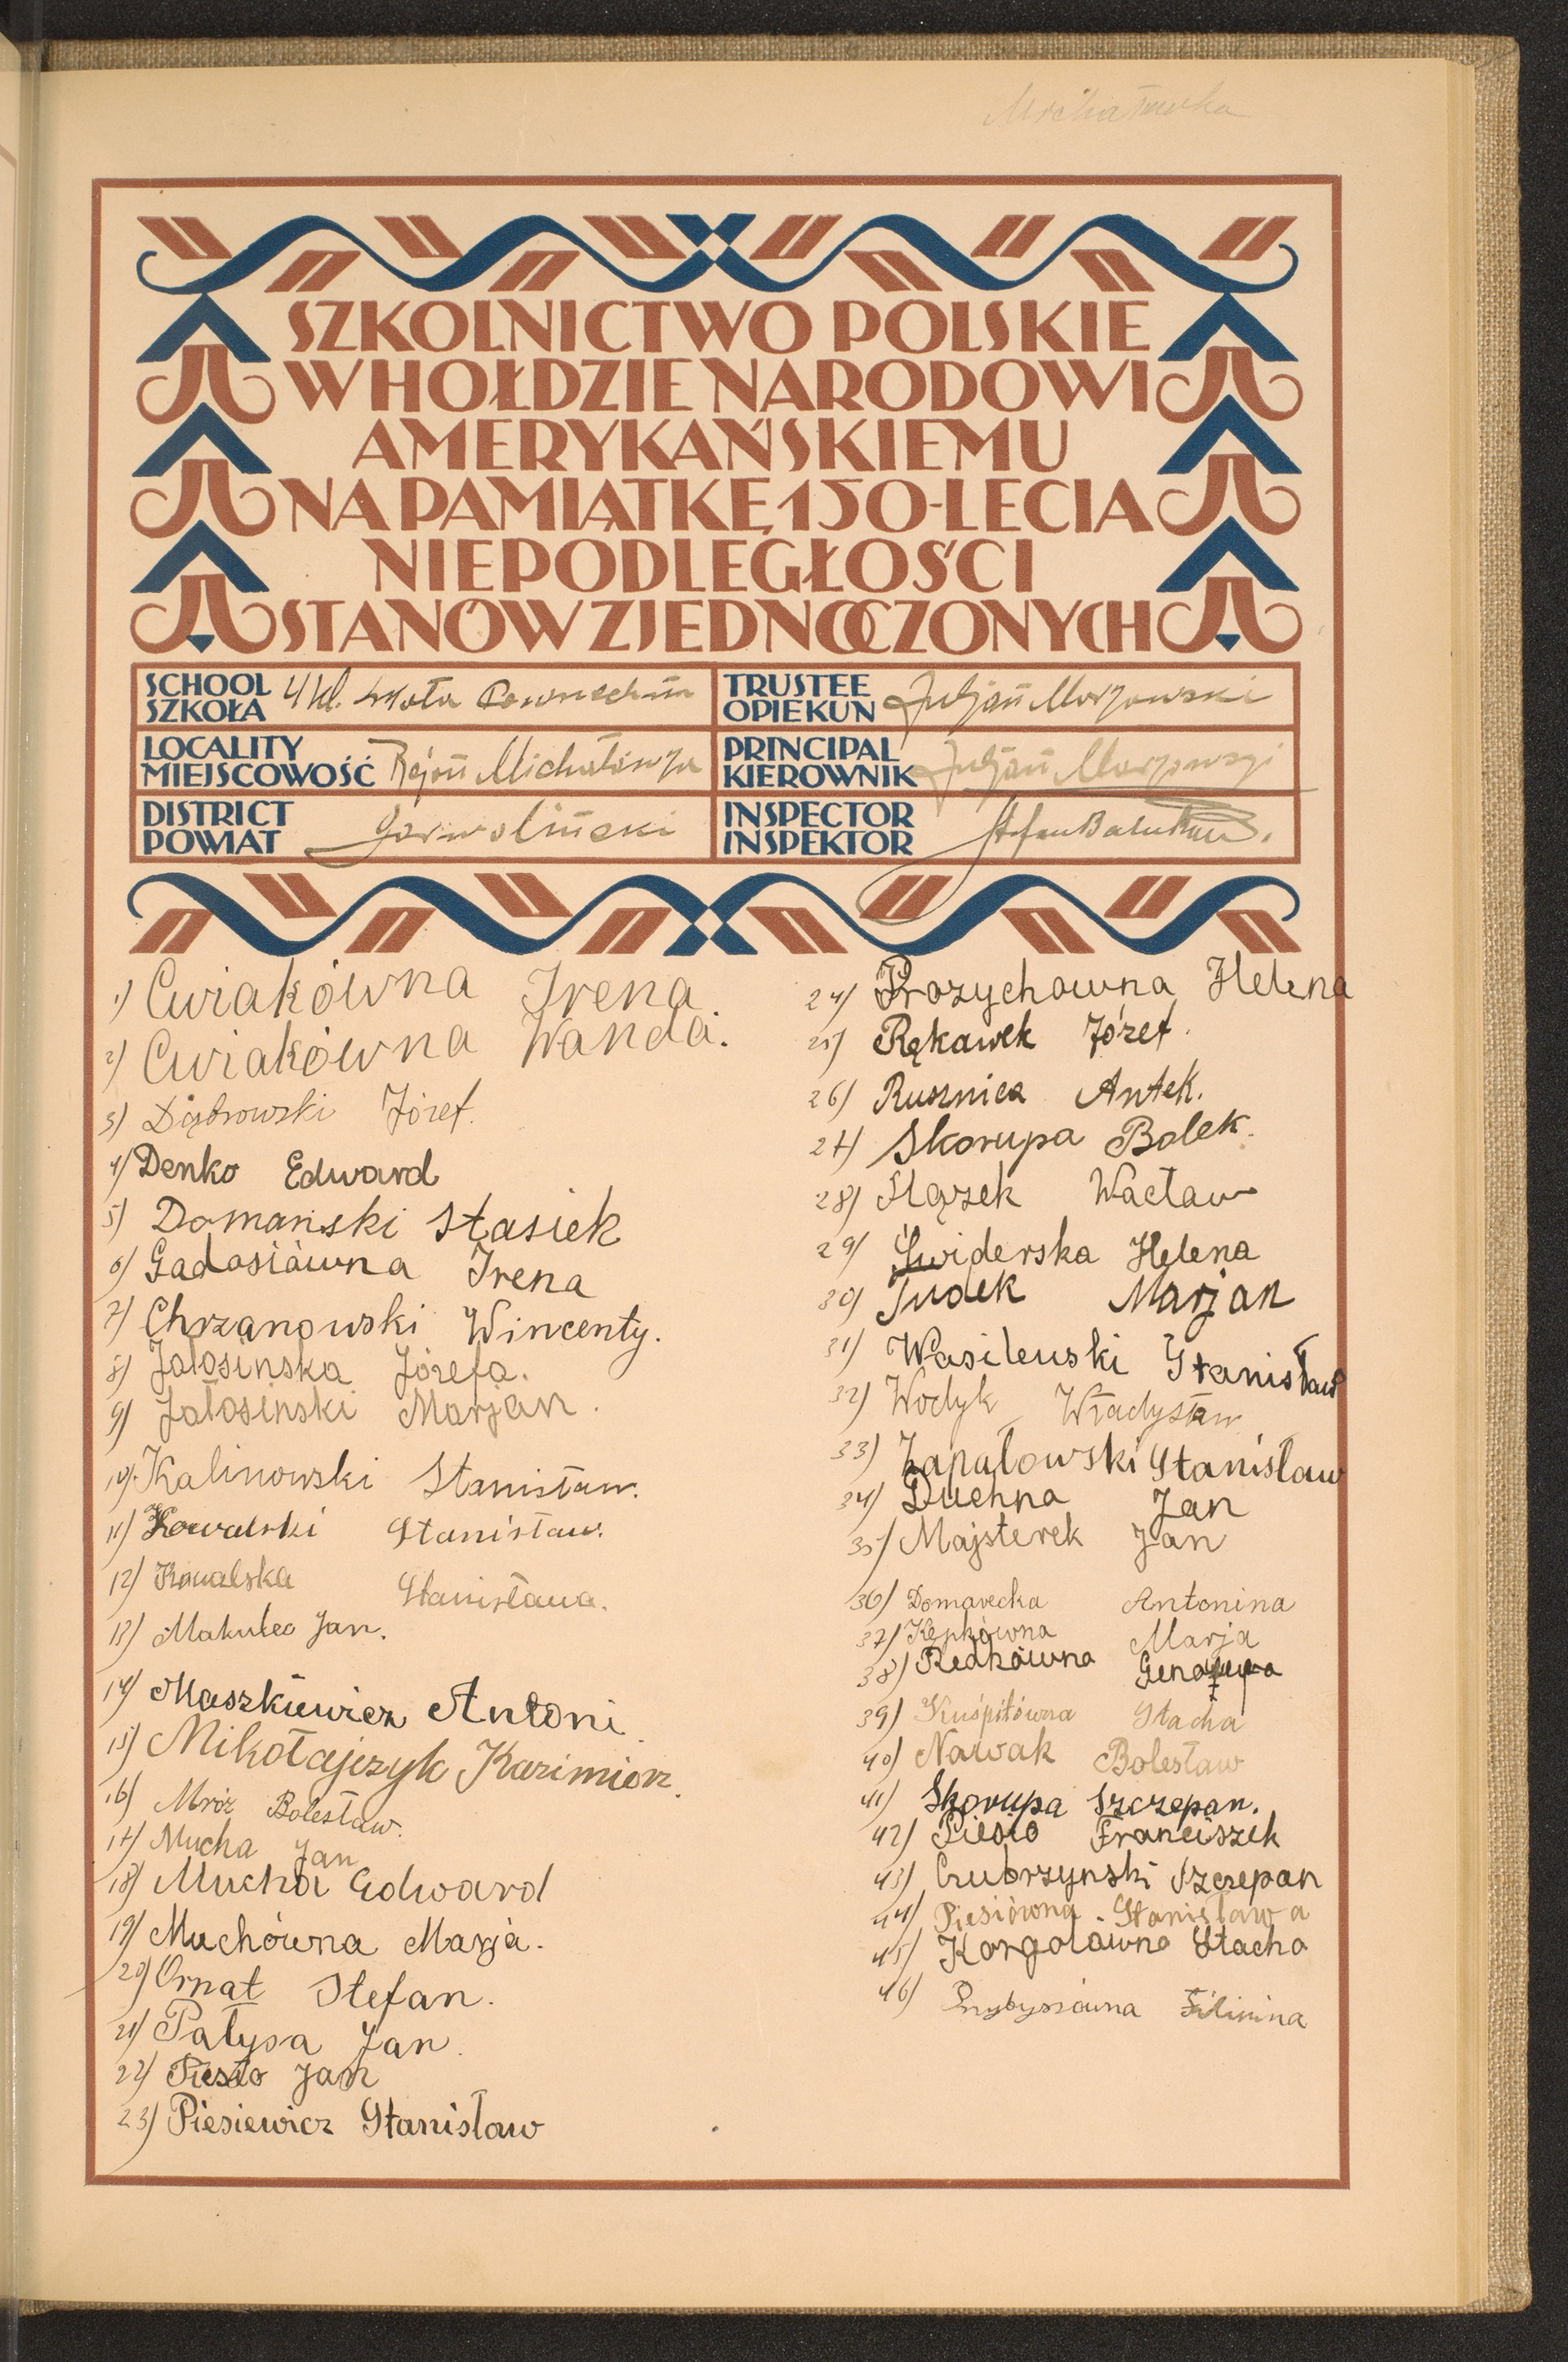 Michałówka
SZKOLNICTWO POLSKIE
W HOŁDZIE NARODOWI
AMERYKAŃSKIEMU
NA PAMIĄTKĘ 150-LECIA
NIEPODLEGŁOŚCI
STANÓW ZJEDNOCZONYCH
SCHOOL
SZKOŁA
4 kl. szkoła Powszechna
TRUSTEE
OPIEKUN
Juljan
LOCALITY
MIEJSCOWOŚĆ
Rejon Michałówka
PRINCIPAL
KIEROWNIK
Juljan
DISTRICT
POWIAT
Garwoliński
INSPECTOR
INSPEKTOR
Stefan
1) Cwiakówna Irena
2) Cwiakówna Wanda.
3) Dąbrowski Józef.
4) Denko Edward
5) Domański Stasiek
6) Gadosiówna Irena
7) Chrzanowski Wincenty.
8) Jałosińska Józefa.
9) Jałosiński Marjan.
10) Kalinowski Stanisław.
11) Kowalski Stanisław.
12) Kowalska Stanisława.
13) Makulec Jan.
14) Maszkiewicz Antoni
15) Mikołajczyk Kazimierz.
16) Mróz Bolesław.
17) Mucha Jan
18) Mucha Edward
19) Muchówna Marja.
20) Ornat Stefan.
21) Pałysa Jan.
22) Piesio Jan
23) Piesiewicz Stanisław
24) Prozychowna Helena
25) Rękawek Józef.
26) Rusznica Antek.
27) Skorupa Bolek.
28) Ślązek Wacław
29) Świderska Helena
30) Tudek Marjan
31) Wasilewski Stanisław
32) Wodyk Władysław
33) Zapałowski Stanisław
34) Duchna Jan
35) Majsterek Jan
36) Domarecka Antonina
37) Kępkówna Marja
38) Redkówna Genowefa
39) Kuśpitówna Stacha
40) Nawak Bolesław
41) Skorupa Szczepan.
42) Piesio Franciszek
43) Czubrzynski Szczepan
44) Piesiówna Stanisława
45) Kargolawna Stacha
46) Przybyszówna